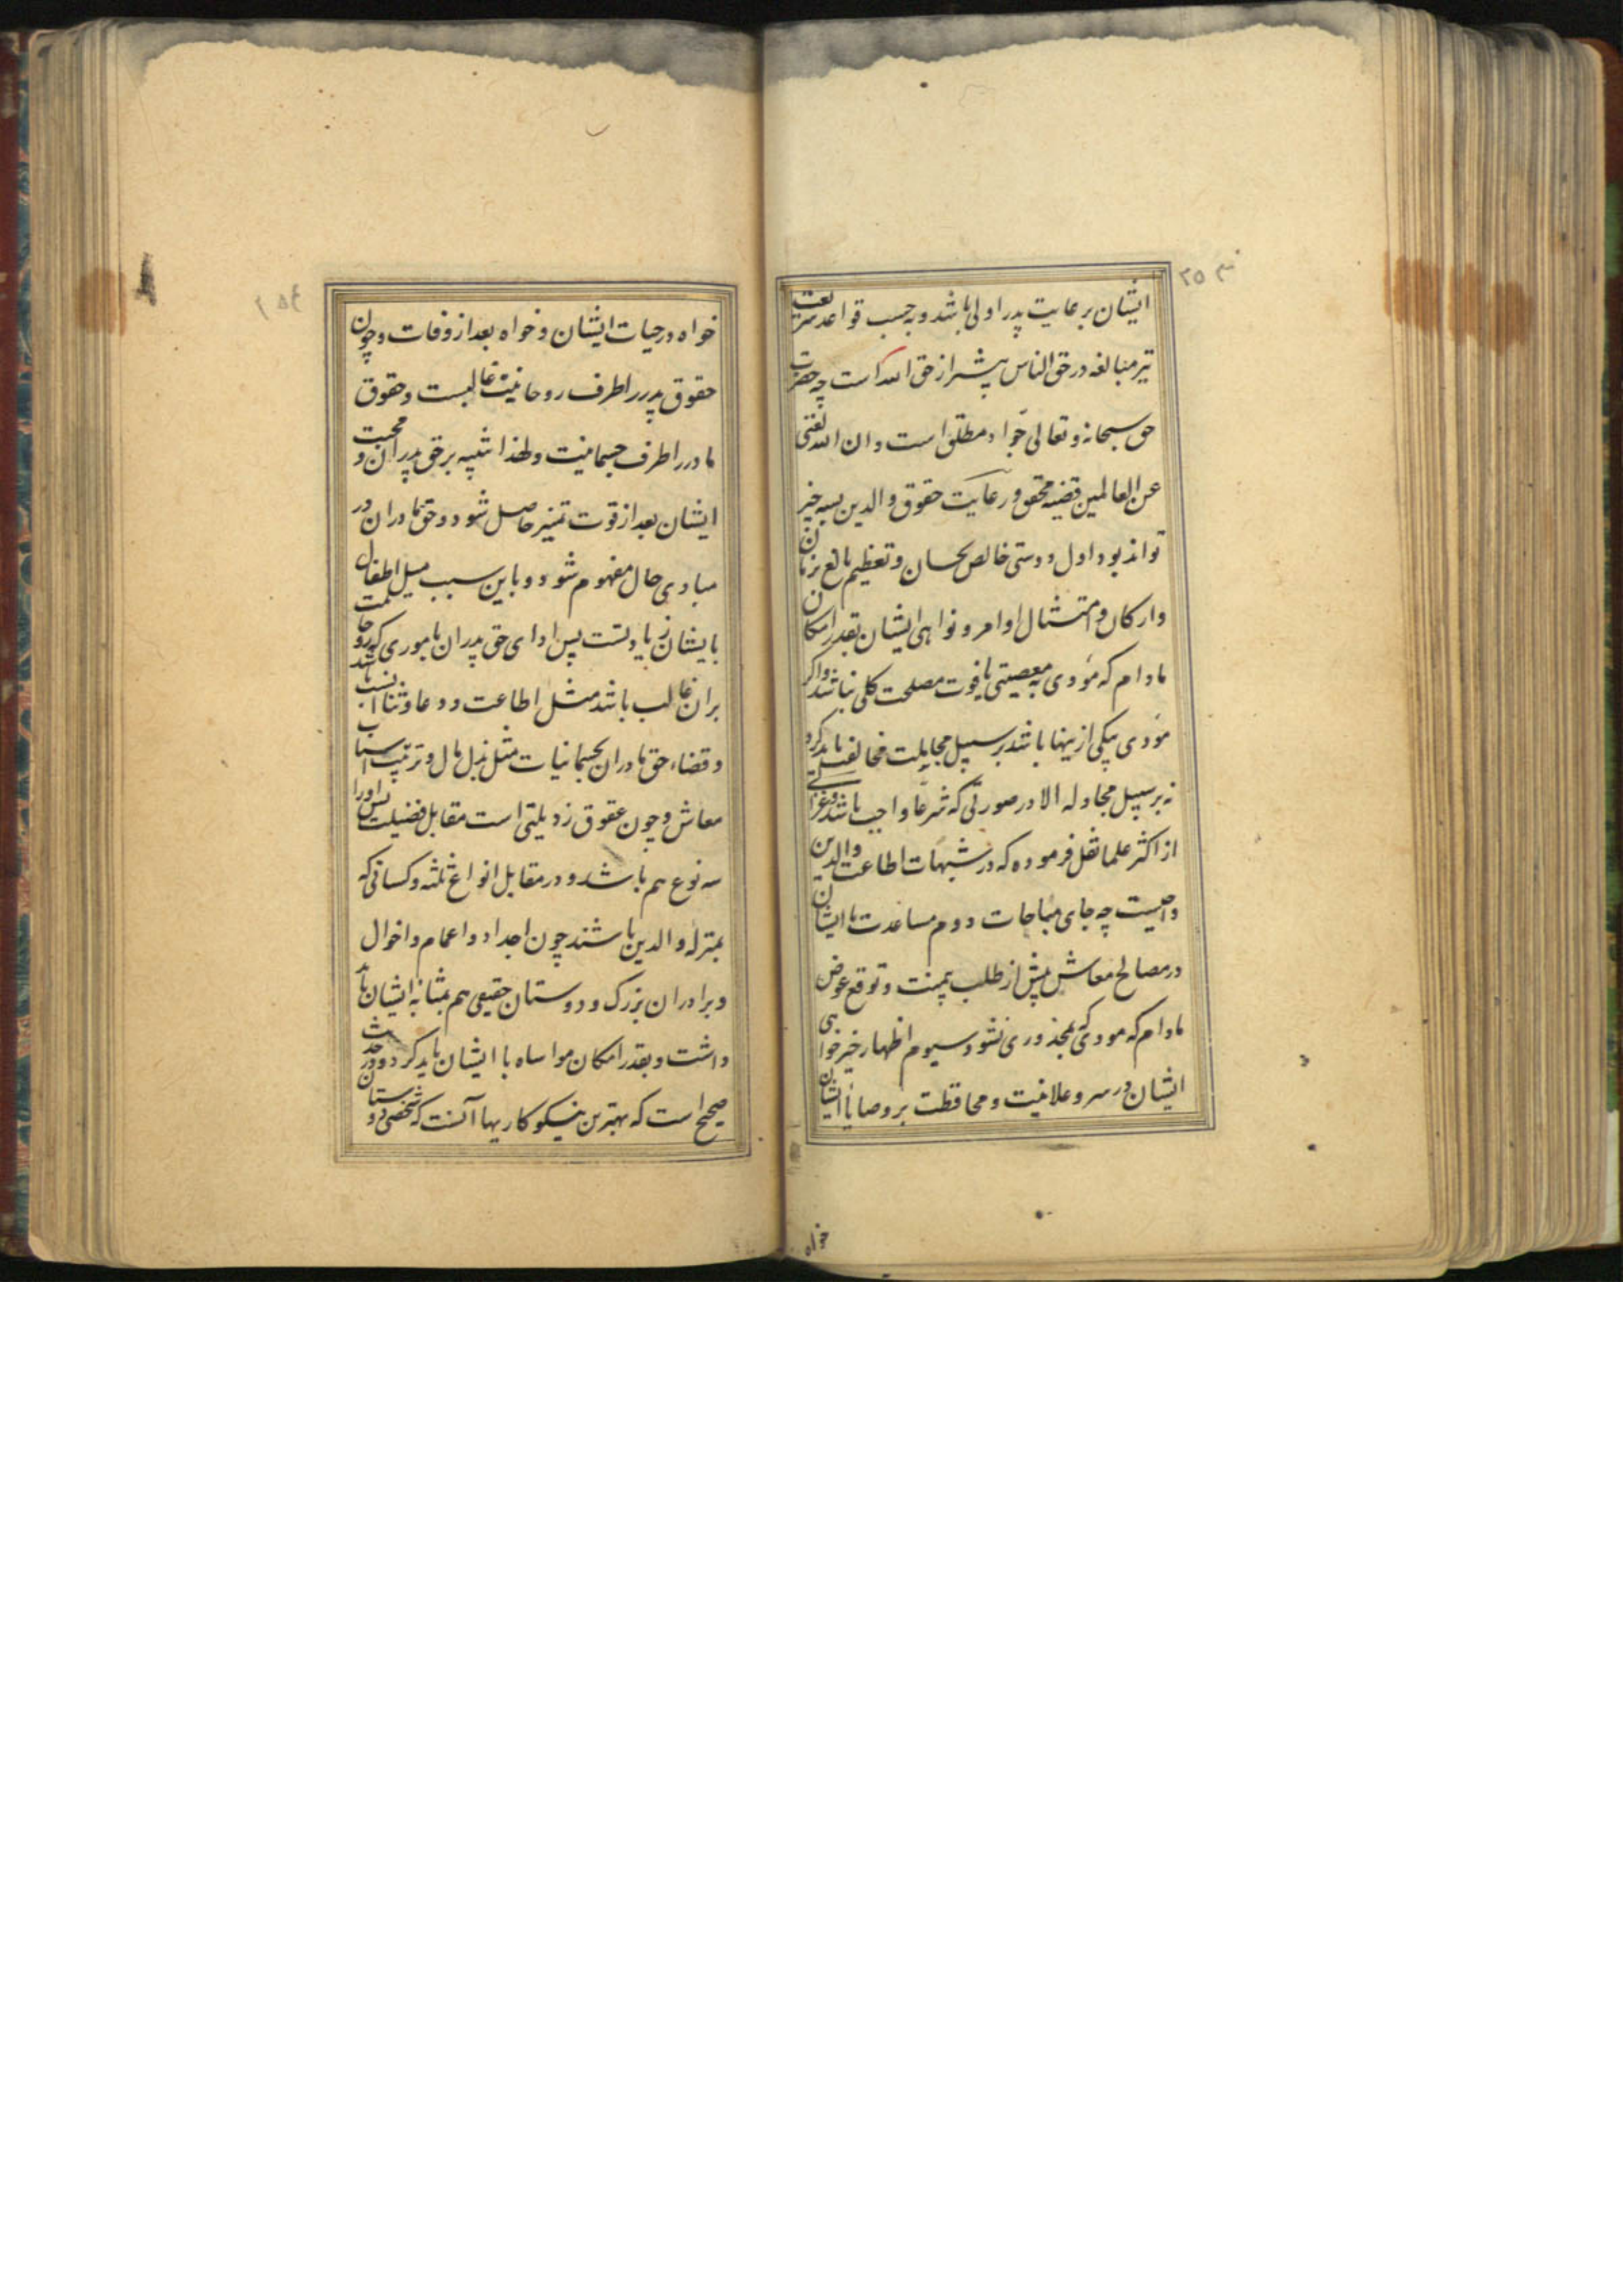 ایشان برعایت پدر اولی باشد و به حسب قواعد شریعت
نیز مبالغه در حق الناس بیشتر از حق الله است چه حضرت
حق سبحانه و تعالی جواد مطلق است و ان الله لغنی
عن العالمین قضیه محقق و رعایت حقوق والدین بسه چیز
تواند بود اول دوستی خالص بجان و تعظیم بالغ بزبان
و ارکان و امتثال اوامر و نواهی ایشان بقدر امکان
مادام که مؤدی به معصیتی یا فوت مصلحت کلی نباشد و اگر
مؤدی بیکی ازینها باشد بر سبیل مجاملت مخالفت باید کرد
نه بر سبیل مجادله الا در صورتی که شرعا واجب باشد و غزالی
از اکثر علما نقل فرموده که در شبهات اطاعت والدین
واجبست چه جای مباحات دوم مساعدت با ایشان
در مصالح معاش پیش از طلب بی منت و توقع عوض
مادام که مودی بمحذوری نشود سیوم اظهار خیرخواهی
ایشان در سر و علانیت و محافظت بر وصایا ایشان
خواه
خواه در حیات ایشان و خواه بعد از وفات و چون
حقوق پدر را طرف روحانیت غالبست و حقوق
مادر را طرف جسمانیت و لهذا تنبیه بر حق پدران و محبت
ایشان بعد از قوت تمیز حاصل شود و حق مادران در
مبادی حال مفهوم شود و باین سبب میل اطفال
بایشان زیادتست پس ادای حق پدران باموری که روحانیت
بران غالب باشد مثل اطاعت و دعا و ثنا انسب باشد
و قضاء حق مادران بجسمانیات مثل بذل مال و ترتیب اسباب
معاش و چون عقوق رذیلتی است مقابل فضیلت پس او را
سه نوع هم باشد و در مقابل انواع ثلثه و کسانی که
بمنزله والدین باشند چون اجداد و اعمام و اخوال
و برادران بزرک و دوستان حقیقی هم بمثابه ایشان باید
داشت و بقدر امکان مواساه با ایشان باید کرد و در حدیث
صحیح است که بهترین نیکوکاریها آنست که شخصی دوستان